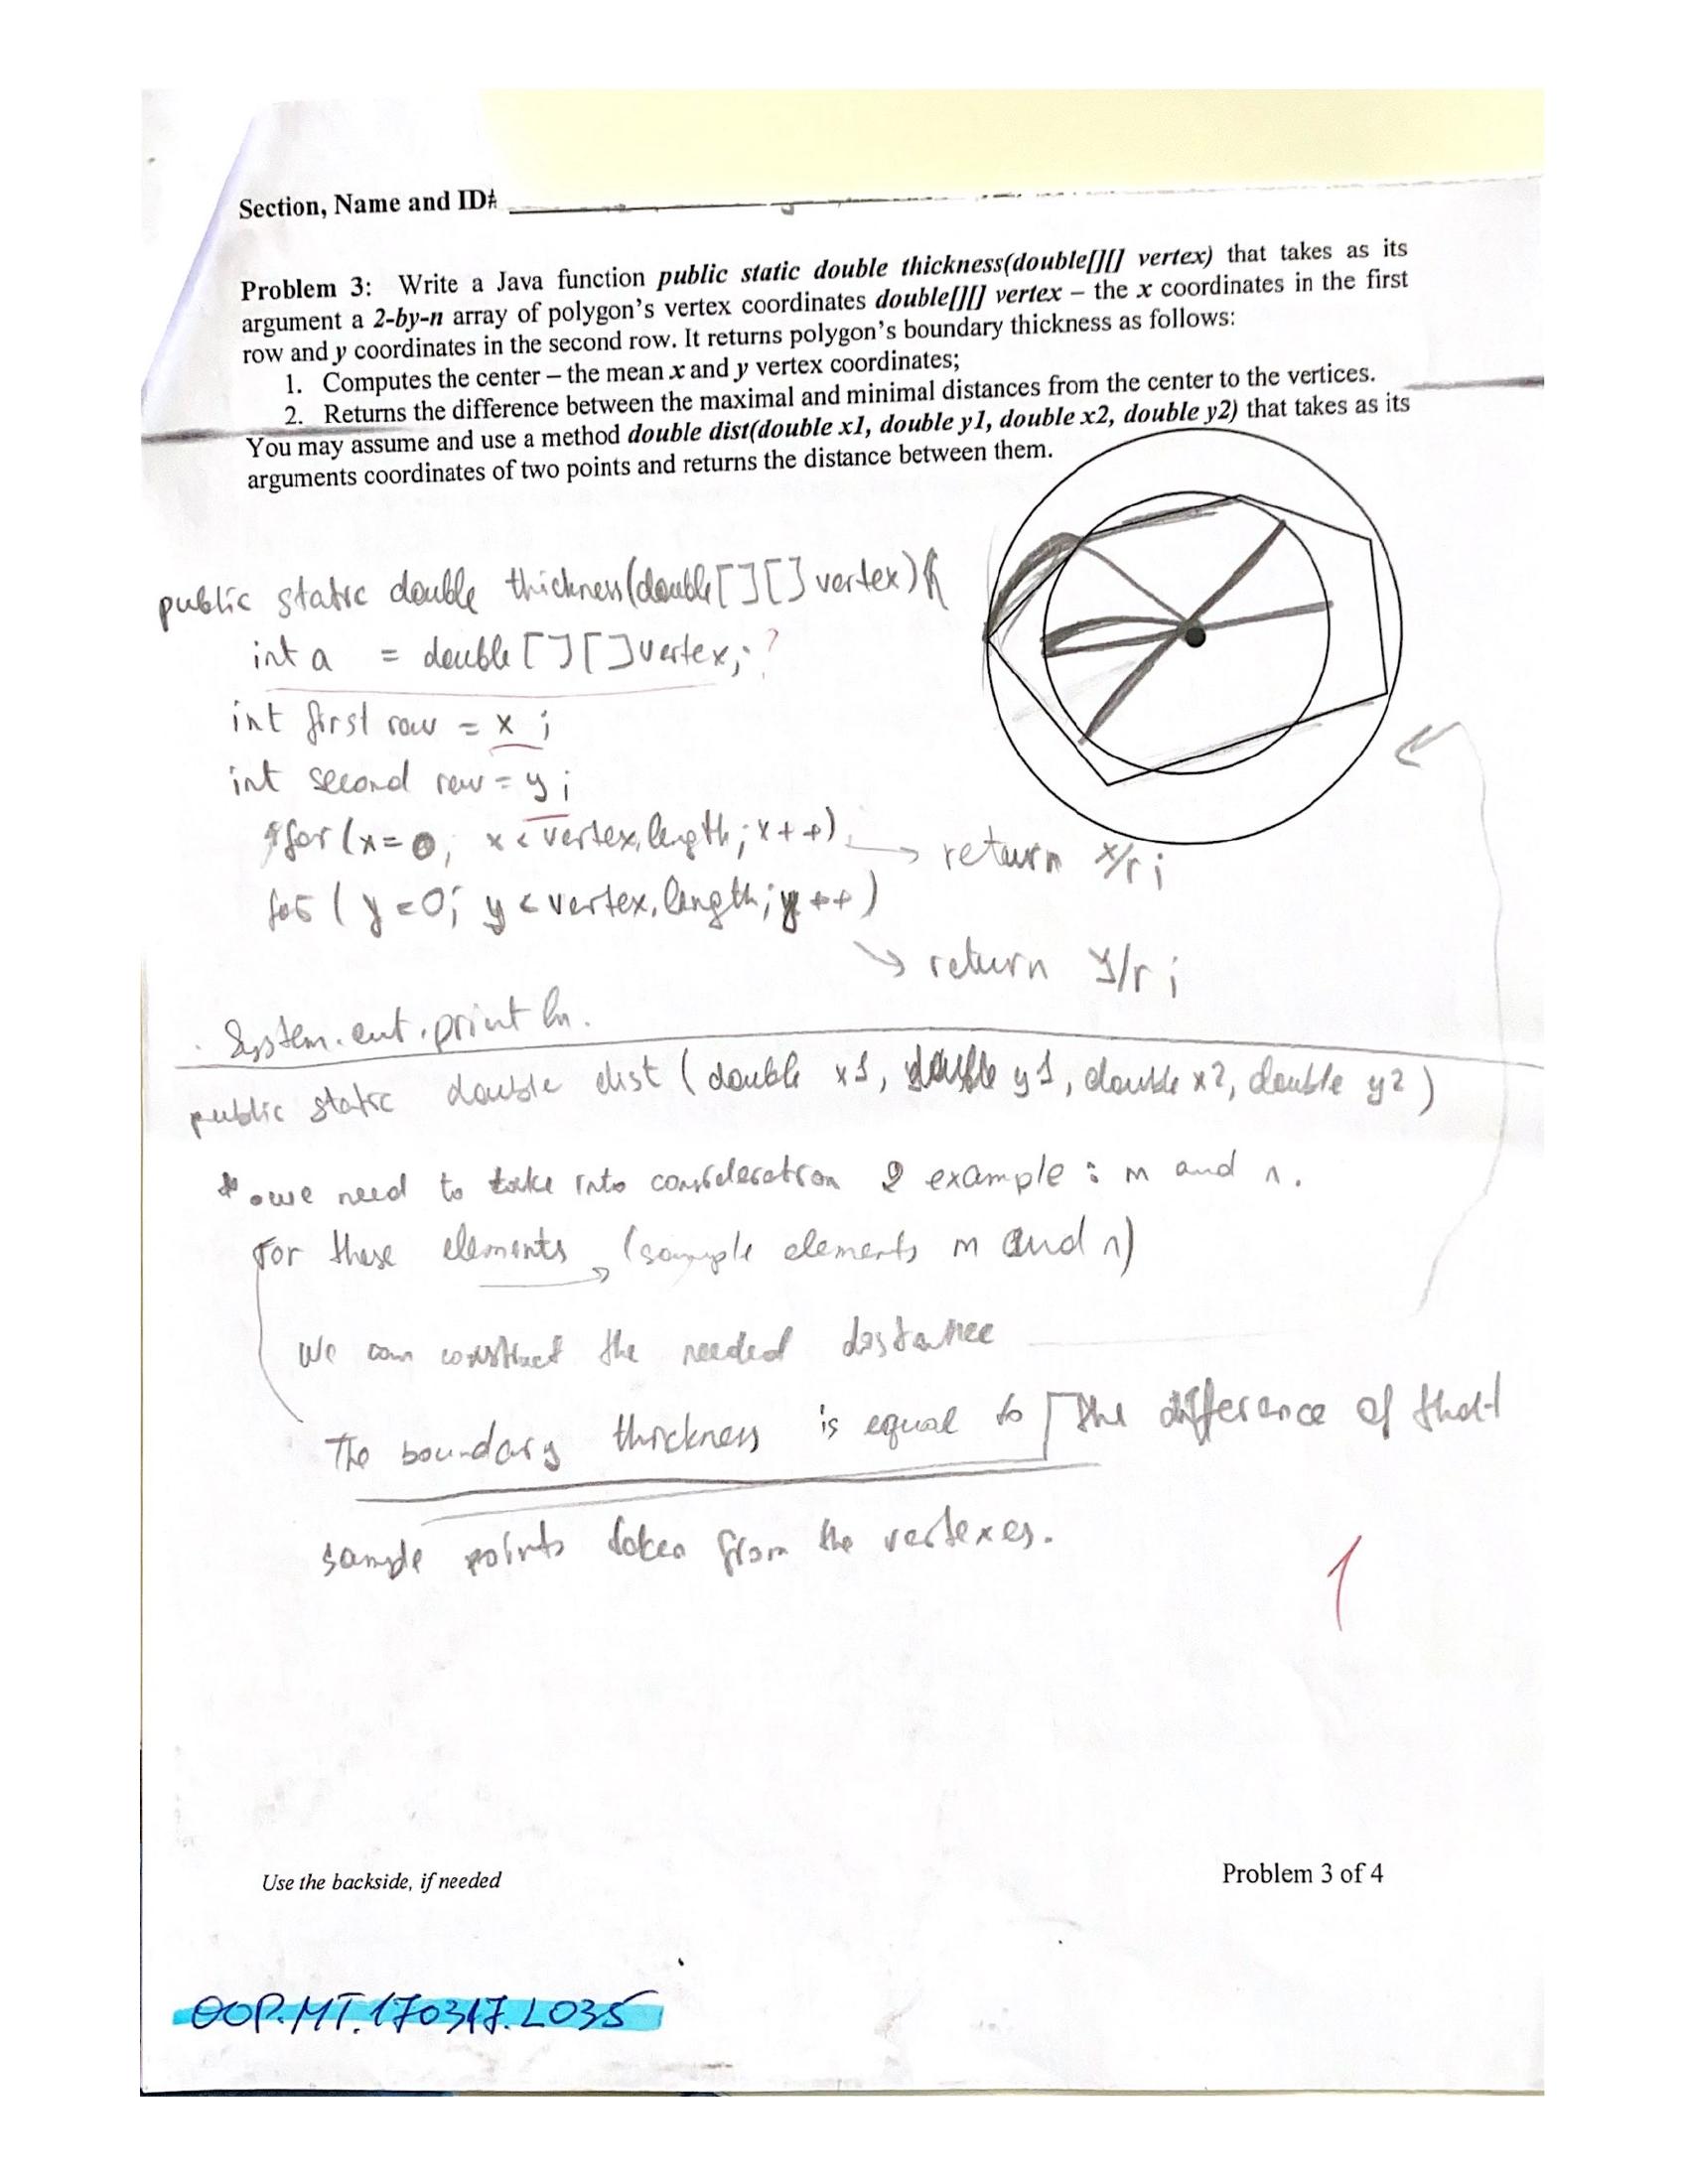 Section, Name and ID#
Problem 3: Write a Java function public static double thickness(double[][] vertex) that takes as its
argument a 2-by-n array of polygon's vertex coordinates double[][] vertex – the x coordinates in the first
row and y coordinates in the second row. It returns polygon's boundary thickness as follows:
1. Computes the center – the mean x and y vertex coordinates;
2. Returns the difference between the maximal and minimal distances from the center to the vertices.
You may assume and use a method double dist(double x1, double y1, double x2, double y2) that takes as its
arguments coordinates of two points and returns the distance between them.
public static double thickness(double[][] vertex){
int a = double[][]vertex; ?
int first row = x ;
int second row = y ;
for (x=0; x < vertex.length; x++) → return x/r ;
for ( y =0; y < vertex.length; y ++)
→ return y/r ;
System.out.println.
public static double dist ( double x1, double y1, double x2, double y2 )
* we need to take into consideration 2 example : m and n.
For these elements → (sample elements m and n)
We can construct the needed distance
The boundary thickness is equal to the difference of that
sample points taken from the vertexes.
1
Use the backside, if needed
Problem 3 of 4
OOP.MT.170317.L035